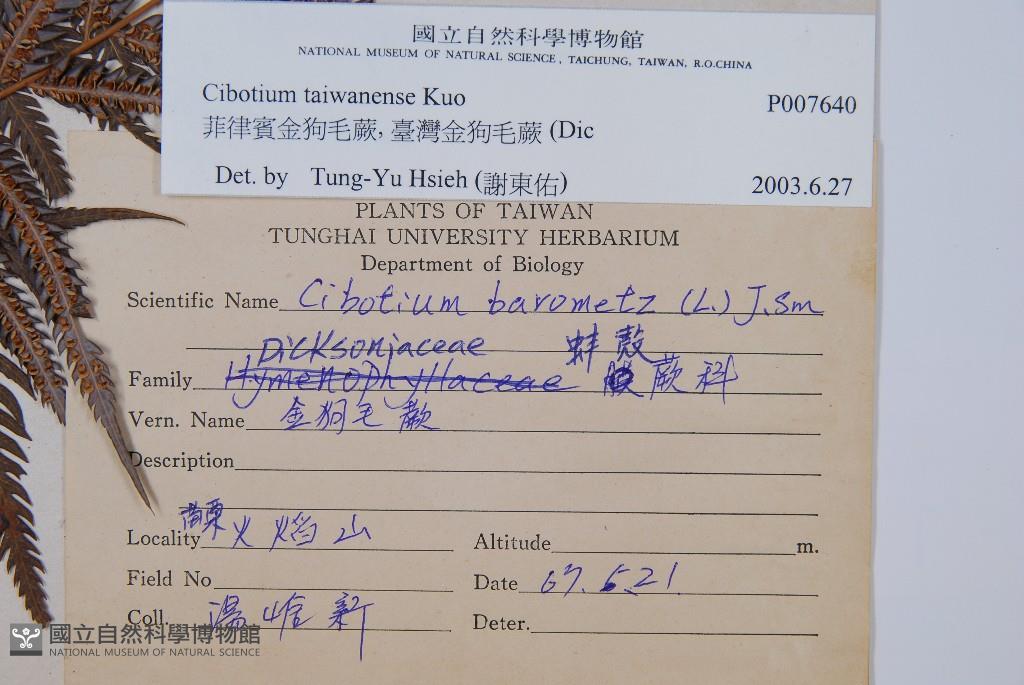 國立自然科學博物館
NATIONAL MUSEUM OF NATURAL SCIENCE, TAICHUNG, TAIWAN, R.O.CHINA
Cibotium taiwanense Kuo P007640
菲律賓金狗毛蕨, 臺灣金狗毛蕨 (Dic
Det. by Tung-Yu Hsieh (謝東佑) 2003.6.27
PLANTS OF TAIWAN
TUNGHAI UNIVERSITY HERBARIUM
Department of Biology
Scientific Name Cibotium barometz (L.) J.Sm
Dicksoniaceae 蚌殼
Family Hymenophyllaceae 蕨科
Vern. Name 金狗毛蕨
Description
Locality 苗栗火焰山 Altitude m.
Field No Date 67.5.21.
Coll. 湯 新 Deter.
國立自然科學博物館
NATIONAL MUSEUM OF NATURAL SCIENCE